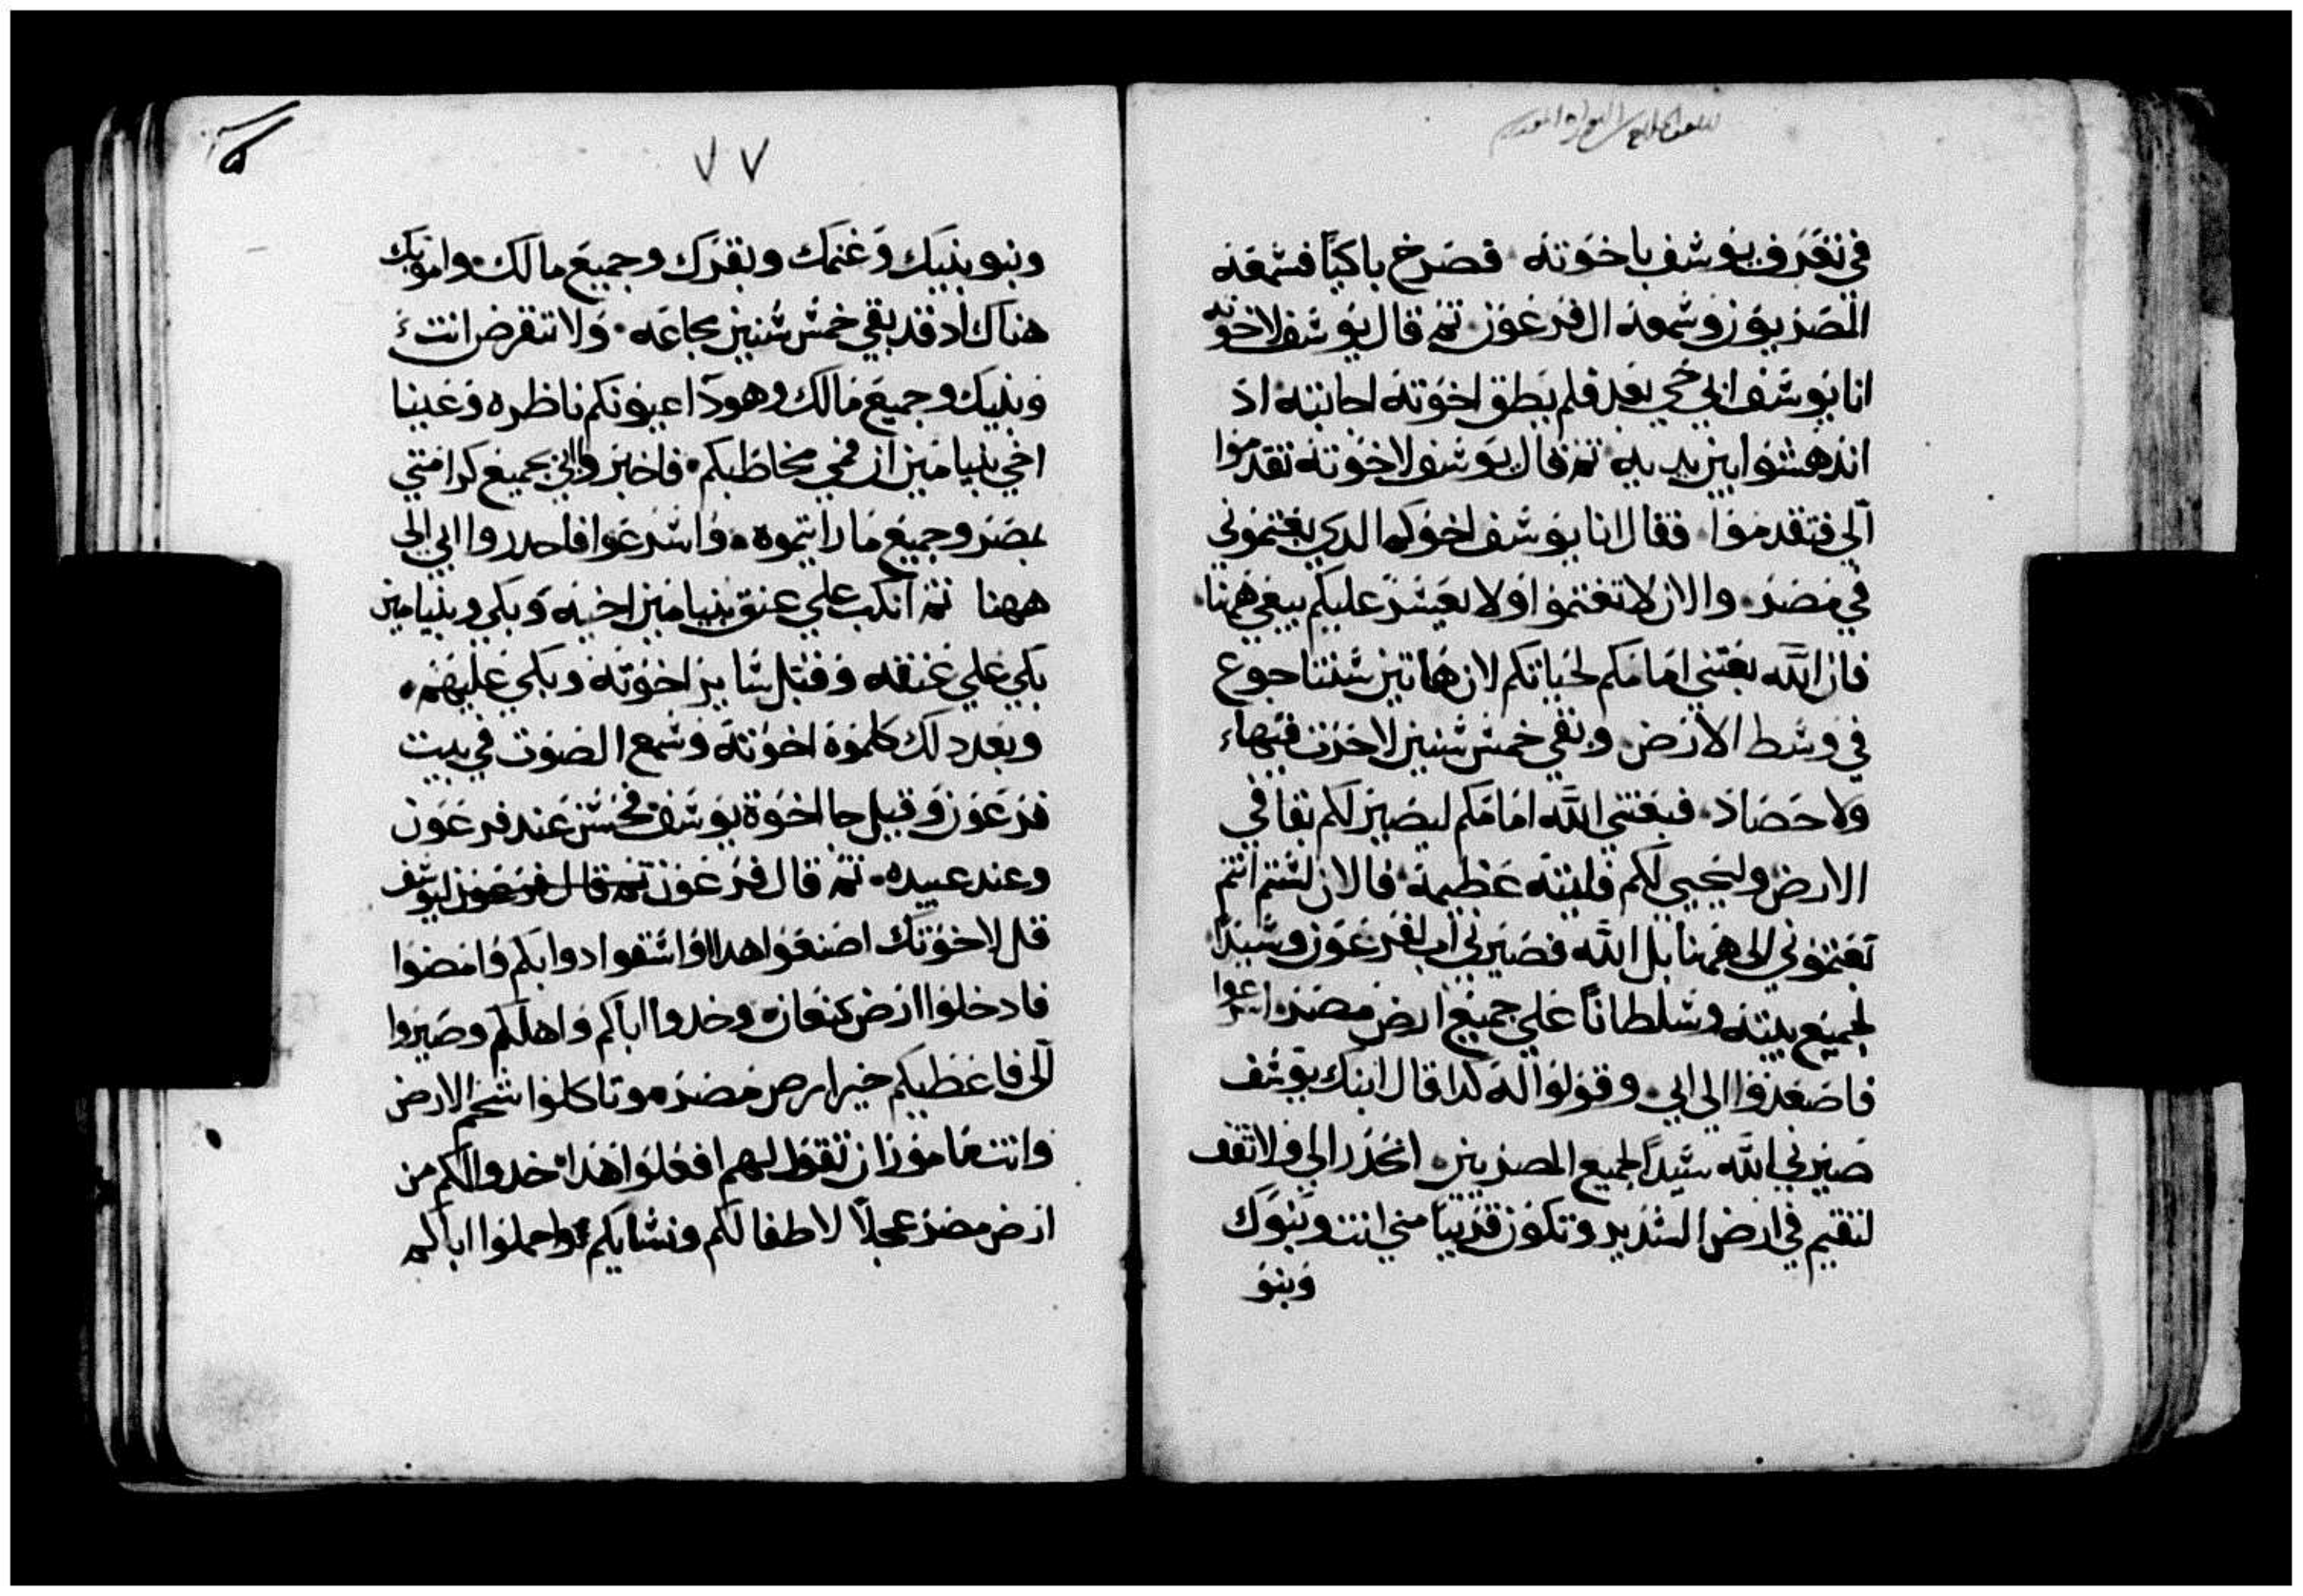 في تعرف يوسف باخوته فصرخ باكيا فسمعه
المصريون وسمعه ال فرعون ثم قال يوسف لاخوته
انا يوسف ابي حي بعد فلم يطق اخوته اجابته اد
اندهشوا بين يديه ثم قال يوسف لاخوته تقدموا
الي فتقدموا فقال انا يوسف اخوكم الدي بعتموني
في مصر والان لا تغتموا ولا يعسر عليكم بيعي ههنا
فان الله بعتني امامكم لحياتكم لان هاتين سنتا جوع
في وسط الارض وبقي خمس سنين لا حرت فيها
ولا حصاد فبعتني الله امامكم ليصير لكم بقا في
الارض وليحيي لكم فليته عظيمة فالان لستم انتم
بعتموني الى ههنا بل الله فصيرني اب لفرعون وسيدا
لجميع بيته وسلطانا علي جميع ارض مصر اسرعوا
فاصعدوا الى ابي وقولوا له كدا قال ابنك يوسف
صيرني الله سيدا لجميع المصريين انحدر الي ولا تقف
لتقيم في ارض السدير وتكون قريبا مني انت وبنوك
وبنو
٧٧
وبنو بنيك وغنمك وبقرك وجميع مالك وامونك
هناك اد قد بقي خمس سنين مجاعه ولا تنقرض انت
وبنيك وجميع مالك وهودا اعيونكم ناظره وعينا
اخي بنيامين ان فمي مخاطبكم فاخبروا ابي بجميع كرامتي
بمصر وجميع ما رايتموه واسرعوا فاحدروا ابي الى
ههنا ثم انكب علي عنق بنيامين اخيه وبكي وبنيامين
بكي علي عنقه وقبل ساير اخوته وبكي عليهم
وبعد دلك كلموه اخوته وسمع الصوت في بيت
فرعون وقيل جا اخوة يوسف فحسن عند فرعون
وعند عبيده ثم قال فرعون ثم قال فرعون ليوسف
قل لاخوتك اصنعوا هدا واسقوا دوابكم وامضوا
فادخلوا ارض كنعان وخدوا اباكم واهلكم وصيروا
الى فاعطيكم خير ارض مصر وتاكلوا شحم الارض
وانت مامور ان تقول لهم افعلوا هدا خدوا لكم من
ارض مصر عجلا لاطفالكم ونسايكم واحملوا اباكم